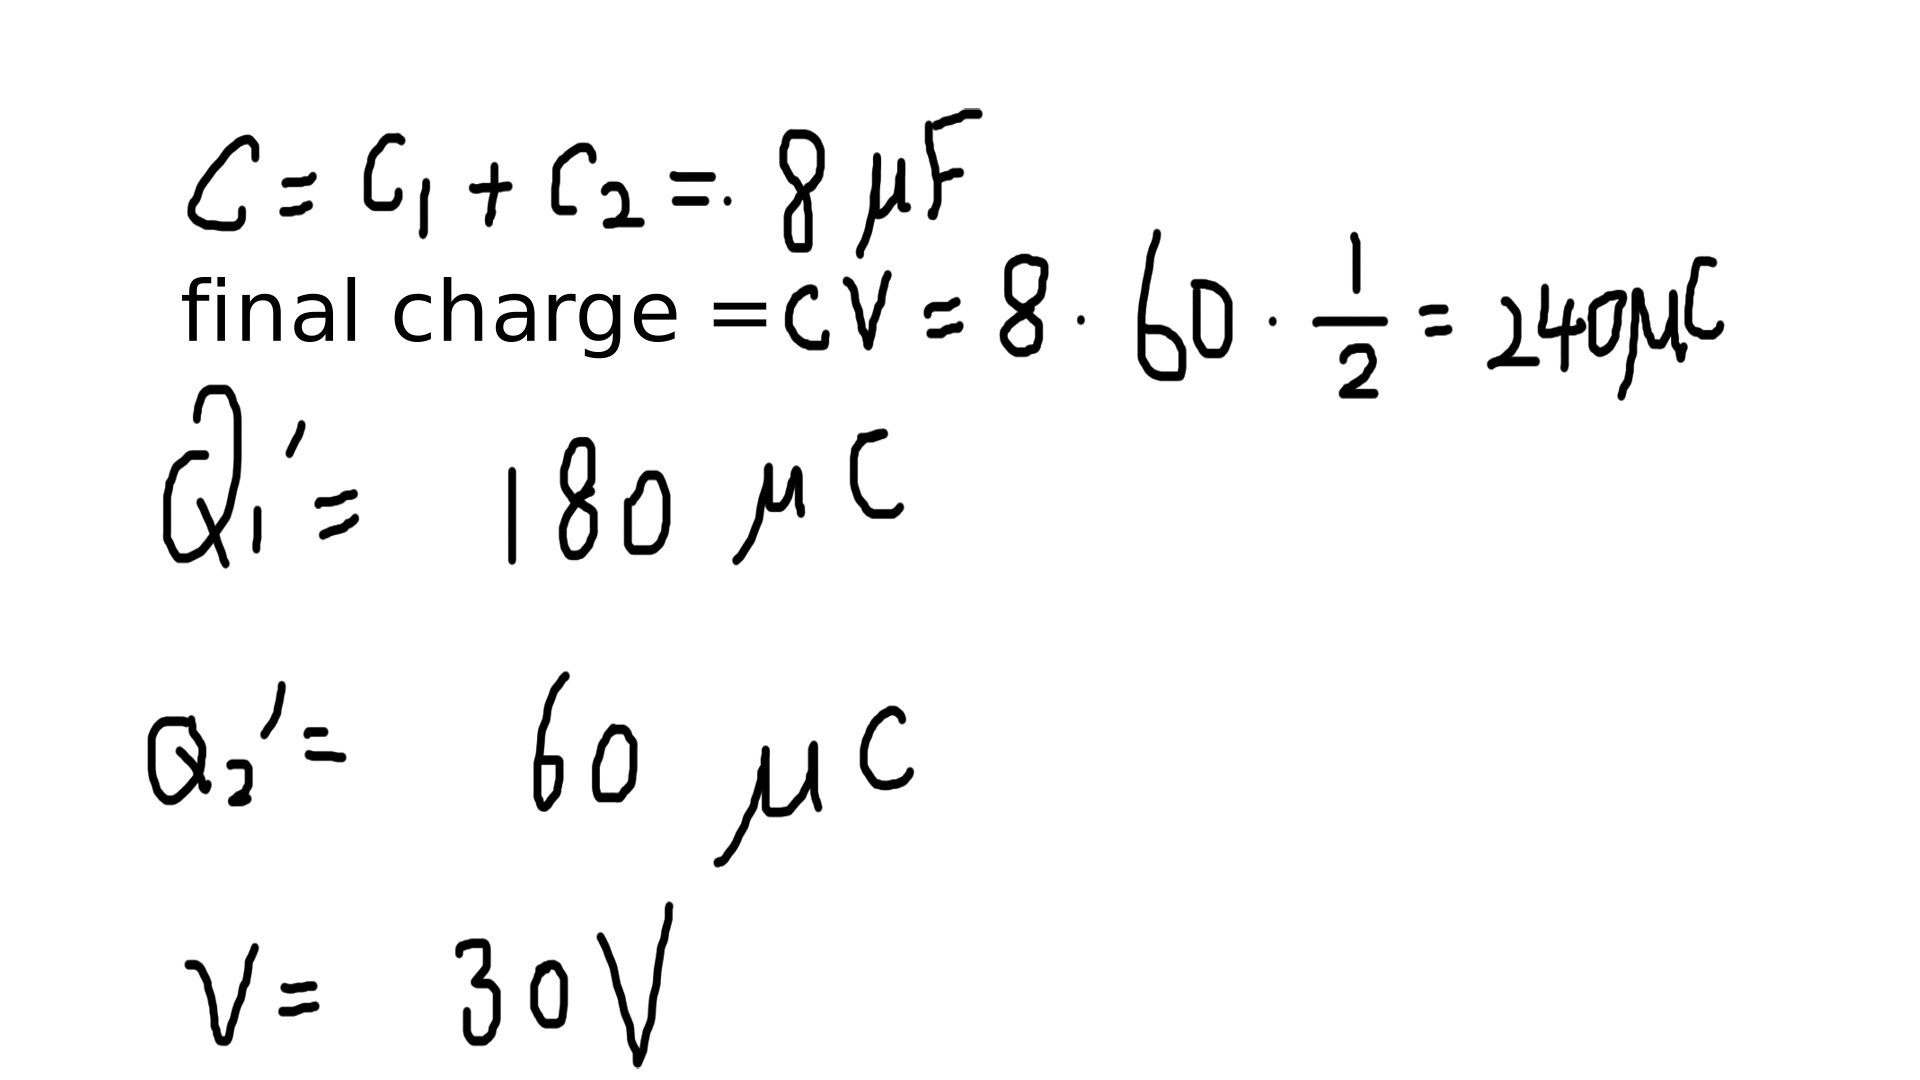 C = C₁ + C₂ = · 8 μF
final charge = CV = 8 · 60 · 1/2 = 240 μC
Q₁' = 180 μC
Q₂' = 60 μC
V = 30 V